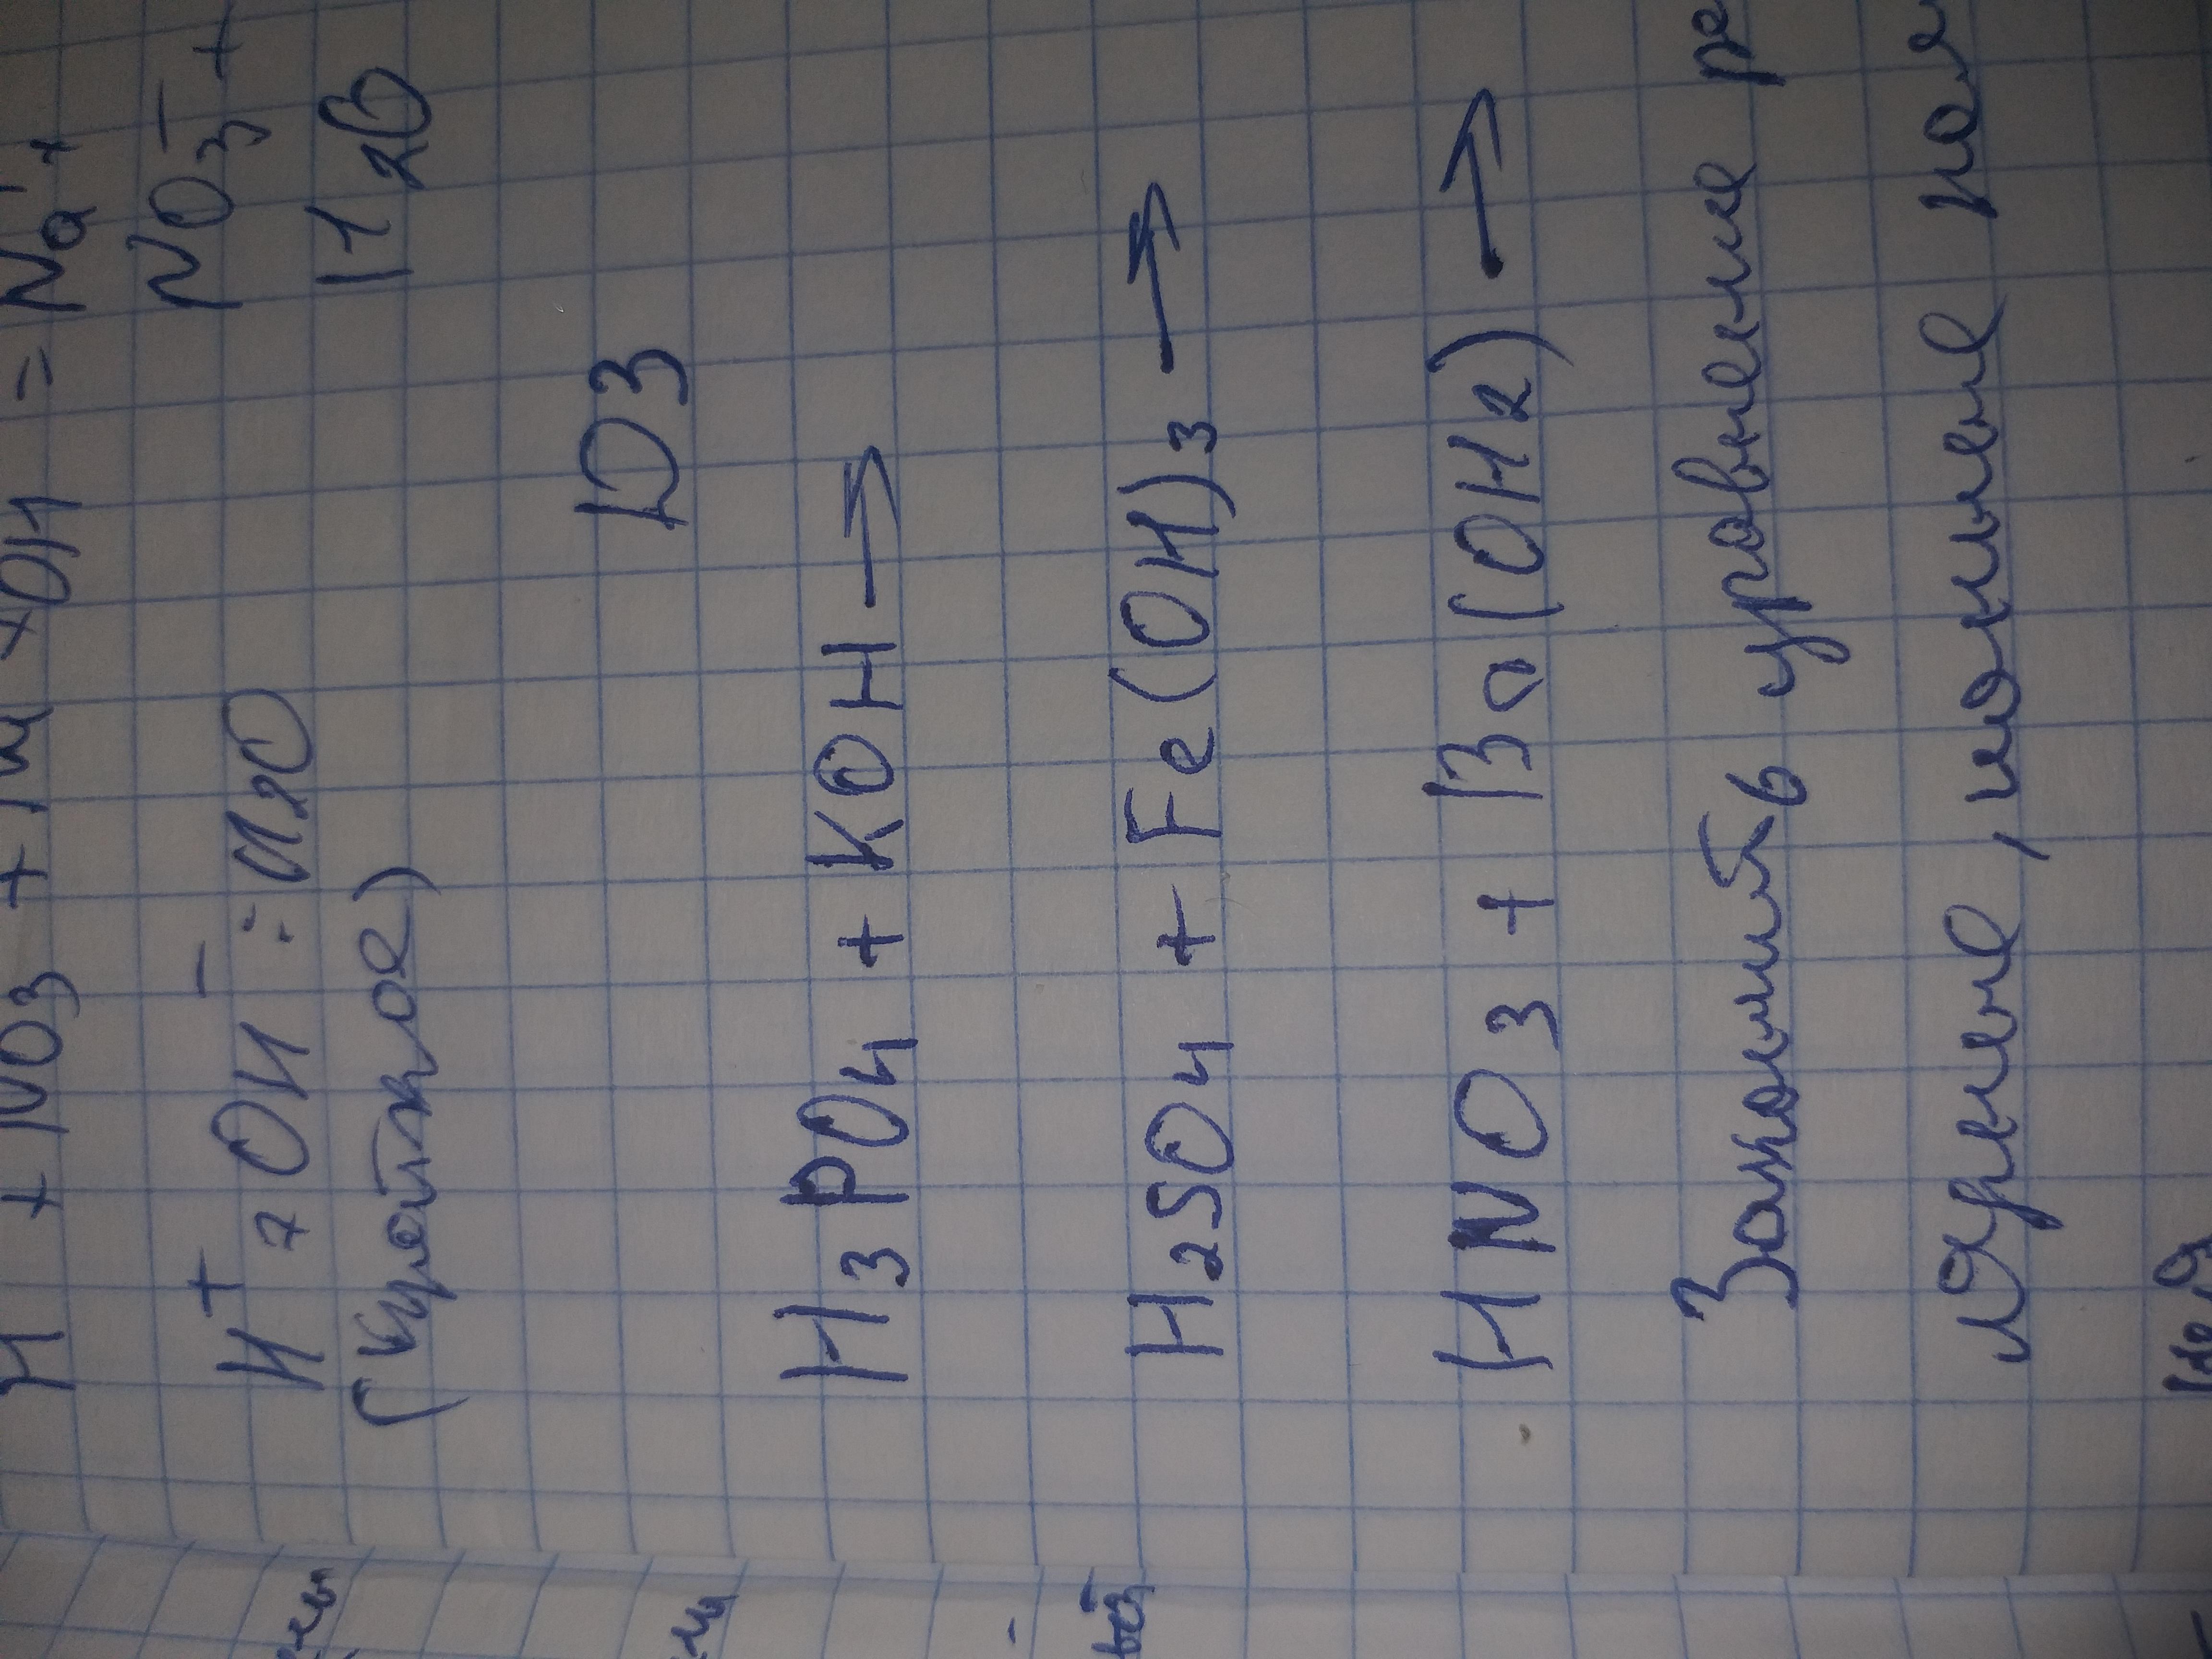 H + NO3 + Na + OH = Na +
NO3⁻ +
H⁺ + OH⁻ = H2O
H2O
(краткое)
DЗ
H3PO4 + KOH →
H2SO4 + Fe(OH)3 →
HNO3 + Ba(OH2) →
Закончить уравнение ре
лярные, ионные пол